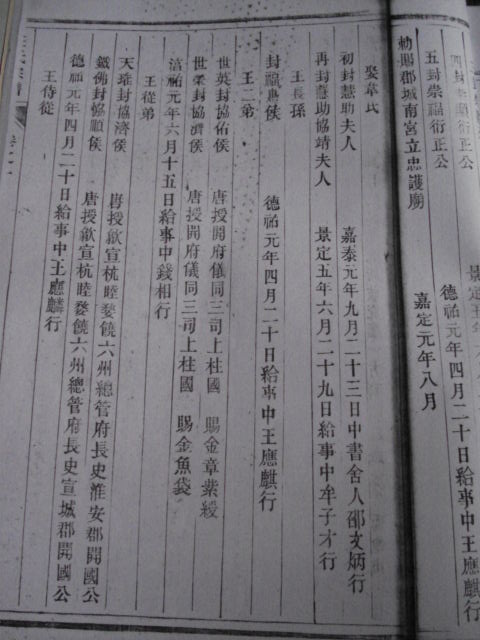 四封崇顯衍正公　景定五年八月
五封崇福衍正公　德祐元年四月二十日給事中王應麒行
勅賜郡城南宮立忠護廟　嘉定元年八月
娶韋氏
初封慧助夫人　嘉泰元年九月二十三日中書舍人邵文炳行
再封慧助協靖夫人　景定五年六月二十九日給事中牟子才行
王長孫
封　侯　德祐元年四月二十日給事中王應麒行
王二弟
世英封協佑侯　唐授開府儀同三司上柱國　賜金章紫綬
世榮封協濟侯　唐授開府儀同三司上柱國　賜金魚袋
淳祐元年六月十五日給事中錢相行
王從弟
天瑤封協濟侯　唐授歙宣杭睦婺饒六州總管府長史淮安郡開國公
鐵佛封協順侯　唐授歙宣杭睦婺饒六州總管府長史宣城郡開國公
德祐元年四月二十日給事中王應麟行
王侍從